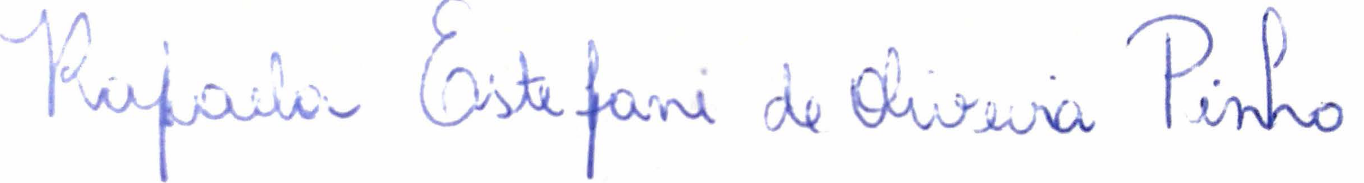 Rafaela Estefani de Oliveira Pinho